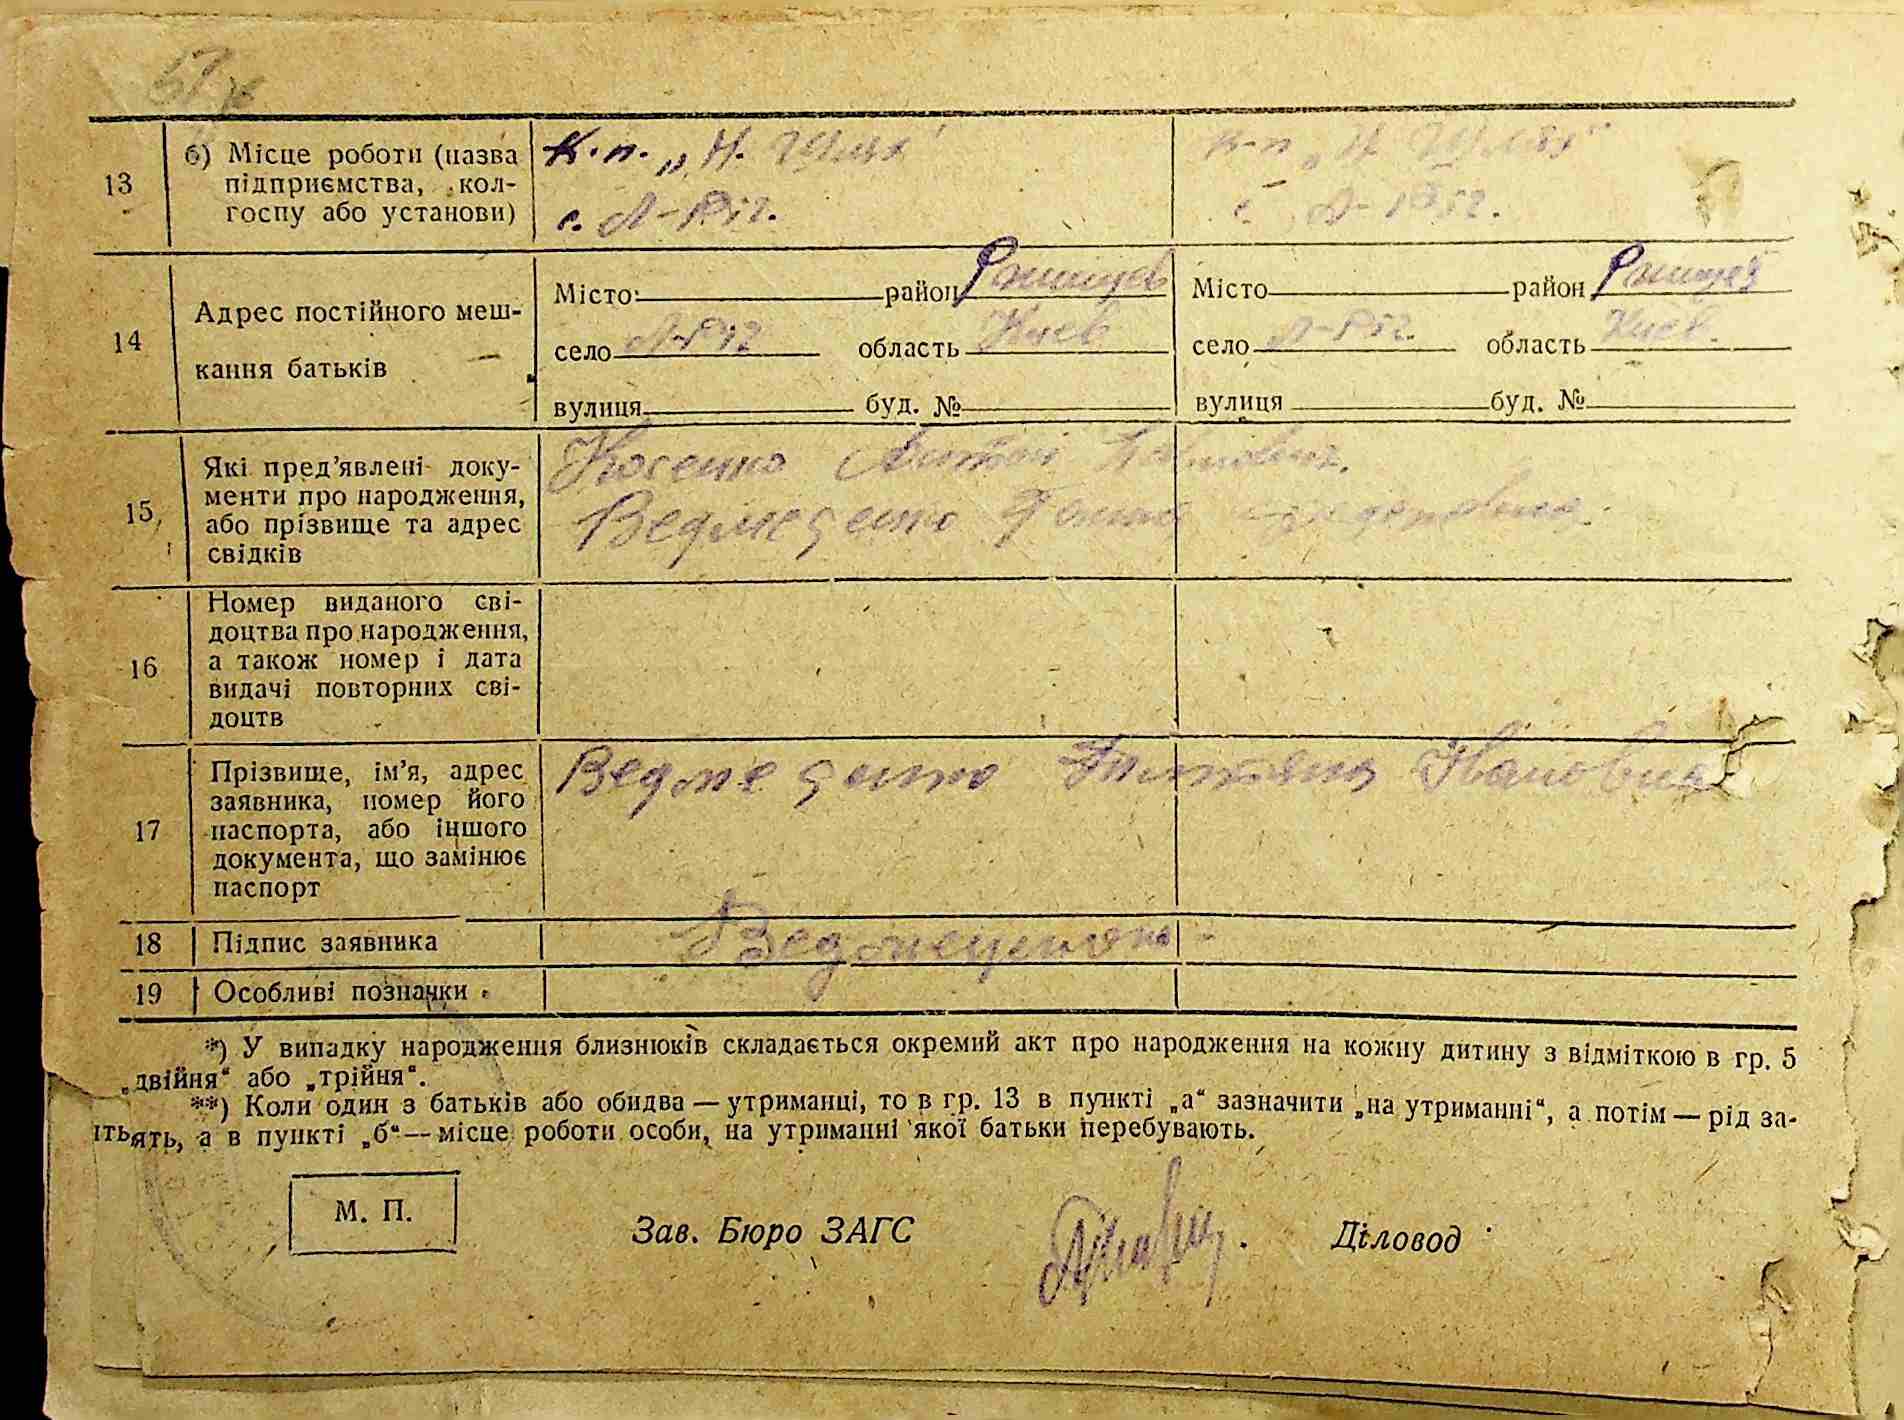 13
б) Місце роботи (назва
підприємства, кол-
госпу або установи)
К.п. „Н. Шлях"
с.
К-п „Н. Шлях"
с.
14
Адрес постійного меш-
кання батьків
Місто район
село область Києв
вулиця буд. №
Місто район
село область Києв.
вулиця буд. №
15
Які пред’явлені доку-
менти про народження,
або прізвище та адрес
свідків
Косенко Антон Павлович.
Ведмеденко
16
Номер виданого сві-
доцтва про народження,
а також номер і дата
видачі повторних сві-
доцтв
17
Прізвище, ім’я, адрес
заявника, номер його
паспорта, або іншого
документа, що замінює
паспорт
Ведмеденко Тетяна Івановна
18
Підпис заявника
19
Особливі позначки
*) У випадку народження близнюків складається окремий акт про народження на кожну дитину з відміткою в гр. 5
„двійня“ або „трійня“.
**) Коли один з батьків або обидва — утриманці, то в гр. 13 в пункті „а“ зазначити „на утриманні“, а потім — рід за-
нять, а в пункті „б“ — місце роботи особи, на утриманні якої батьки перебувають.
М. П.
Зав. Бюро ЗАГС
Діловод